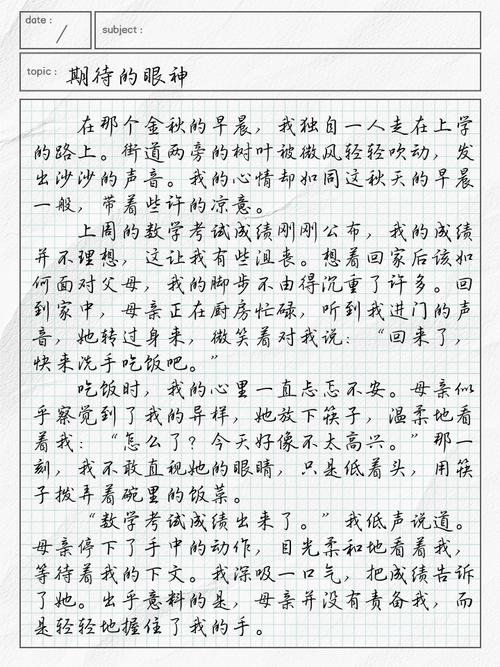 date :
subject :
topic : 期待的眼神
在那个金秋的早晨，我独自一人走在上学
的路上。街道两旁的树叶被微风轻轻吹动，发
出沙沙的声音。我的心情却如同这秋天的早晨
一般，带着些许的凉意。
上周的数学考试成绩刚刚公布，我的成绩
并不理想，这让我有些沮丧。想着回家后该如
何面对父母，我的脚步不由得沉重了许多。回
到家中，母亲正在厨房忙碌，听到我进门的声
音，她转过身来，微笑着对我说：“回来了，
快来洗手吃饭吧。”
吃饭时，我的心里一直忐忑不安。母亲似
乎察觉到了我的异样，她放下筷子，温柔地看
着我：“怎么了？今天好像不太高兴。”那一
刻，我不敢直视她的眼睛，只是低着头，用筷
子拨弄着碗里的饭菜。
“数学考试成绩出来了。”我低声说道。
母亲停下了手中的动作，目光柔和地看着我，
等待着我的下文。我深吸一口气，把成绩告诉
了她。出乎意料的是，母亲并没有责备我，而
是轻轻地握住了我的手。